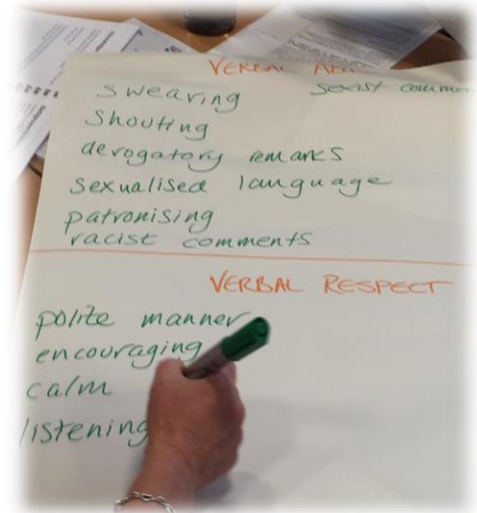 VERBAL
swearing sexist
shouting
derogatory remarks
sexualised language
patronising
racist comments
VERBAL RESPECT
polite manner
encouraging
calm
listening